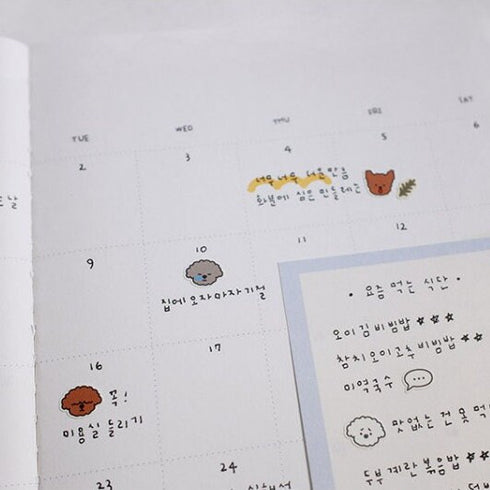 TUE
WED
THU
FRI
SAT
2
3
4
5
6
너무 너무 더운 만큼
화분에 심은 민들레는
9
10
11
12
집에 오자마자 기절
• 요즘 먹는 식단 •
오이김비빔밥 ☆☆☆
참치오이고추비빔밥 ☆☆
미역국수
맛없는 건 못 먹
두부계란볶음밥 ☆
16
17
꼭!
미용실 들리기
23
24